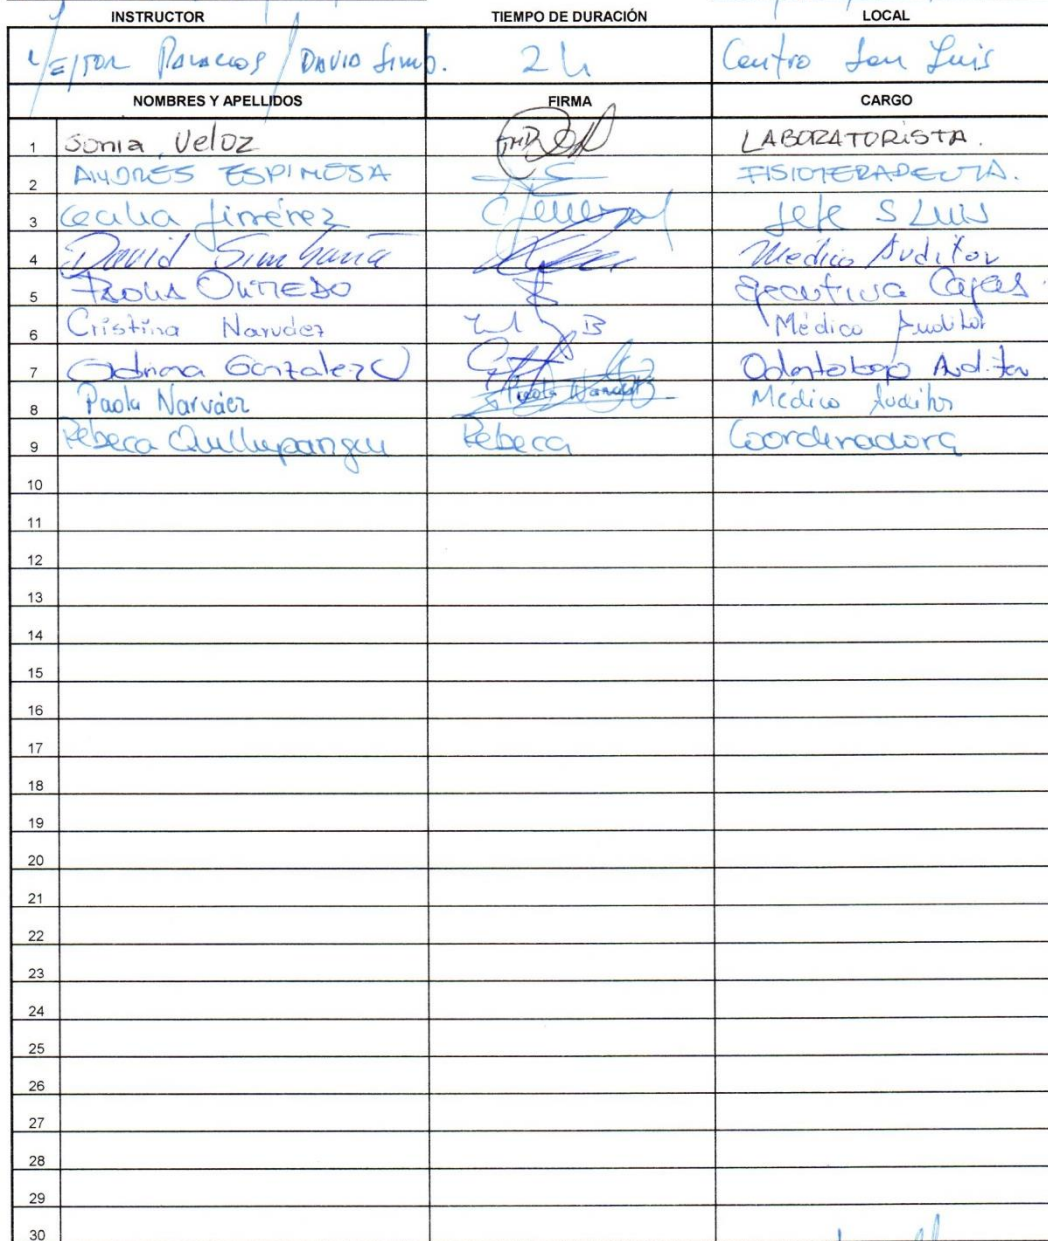 INSTRUCTOR TIEMPO DE DURACIÓN LOCAL
Palacios / DAVID Simb. 2h Centro San Luis
NOMBRES Y APELLIDOS FIRMA CARGO
1 Sonia Veloz LABORATORISTA.
2 ANDRÉS ESPINOSA FISIOTERAPEUTA.
3 Cecilia Jiménez Jefe S LUIS
4 David Simbaña Médico Auditor
5 PAOLA OLMEDO Ejecutiva Cajas.
6 Cristina Narvaez Médico Auditor
7 Adriana Gonzalez Odontologo Auditor
8 Paola Narváez Paola Narváez Médico Auditor
9 Rebeca Quillupangui Rebeca Coordinadora
10
11
12
13
14
15
16
17
18
19
20
21
22
23
24
25
26
27
28
29
30